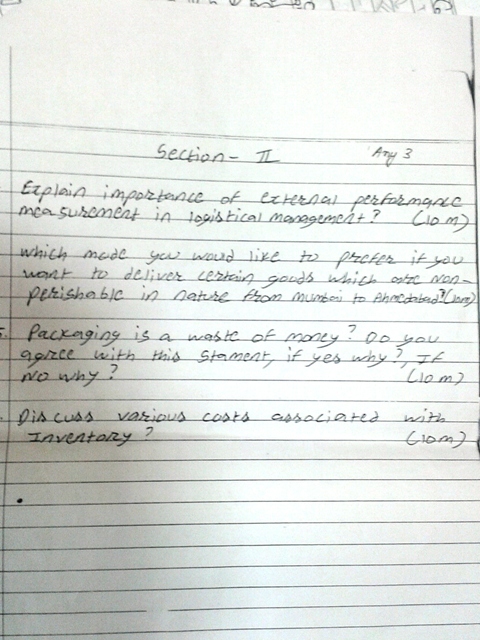 Section - II Any 3
Explain importance of external performance
measurement in logistical management? (10 m)
which mode you would like to prefer if you
want to deliver certain goods which are non-
perishable in nature from mumbai to Ahmedabad? (10m)
5. Packaging is a waste of money? Do you
agree with this stament, if yes why?, If
No why? (10 m)
Discuss various costs associated with
Inventory? (10m)